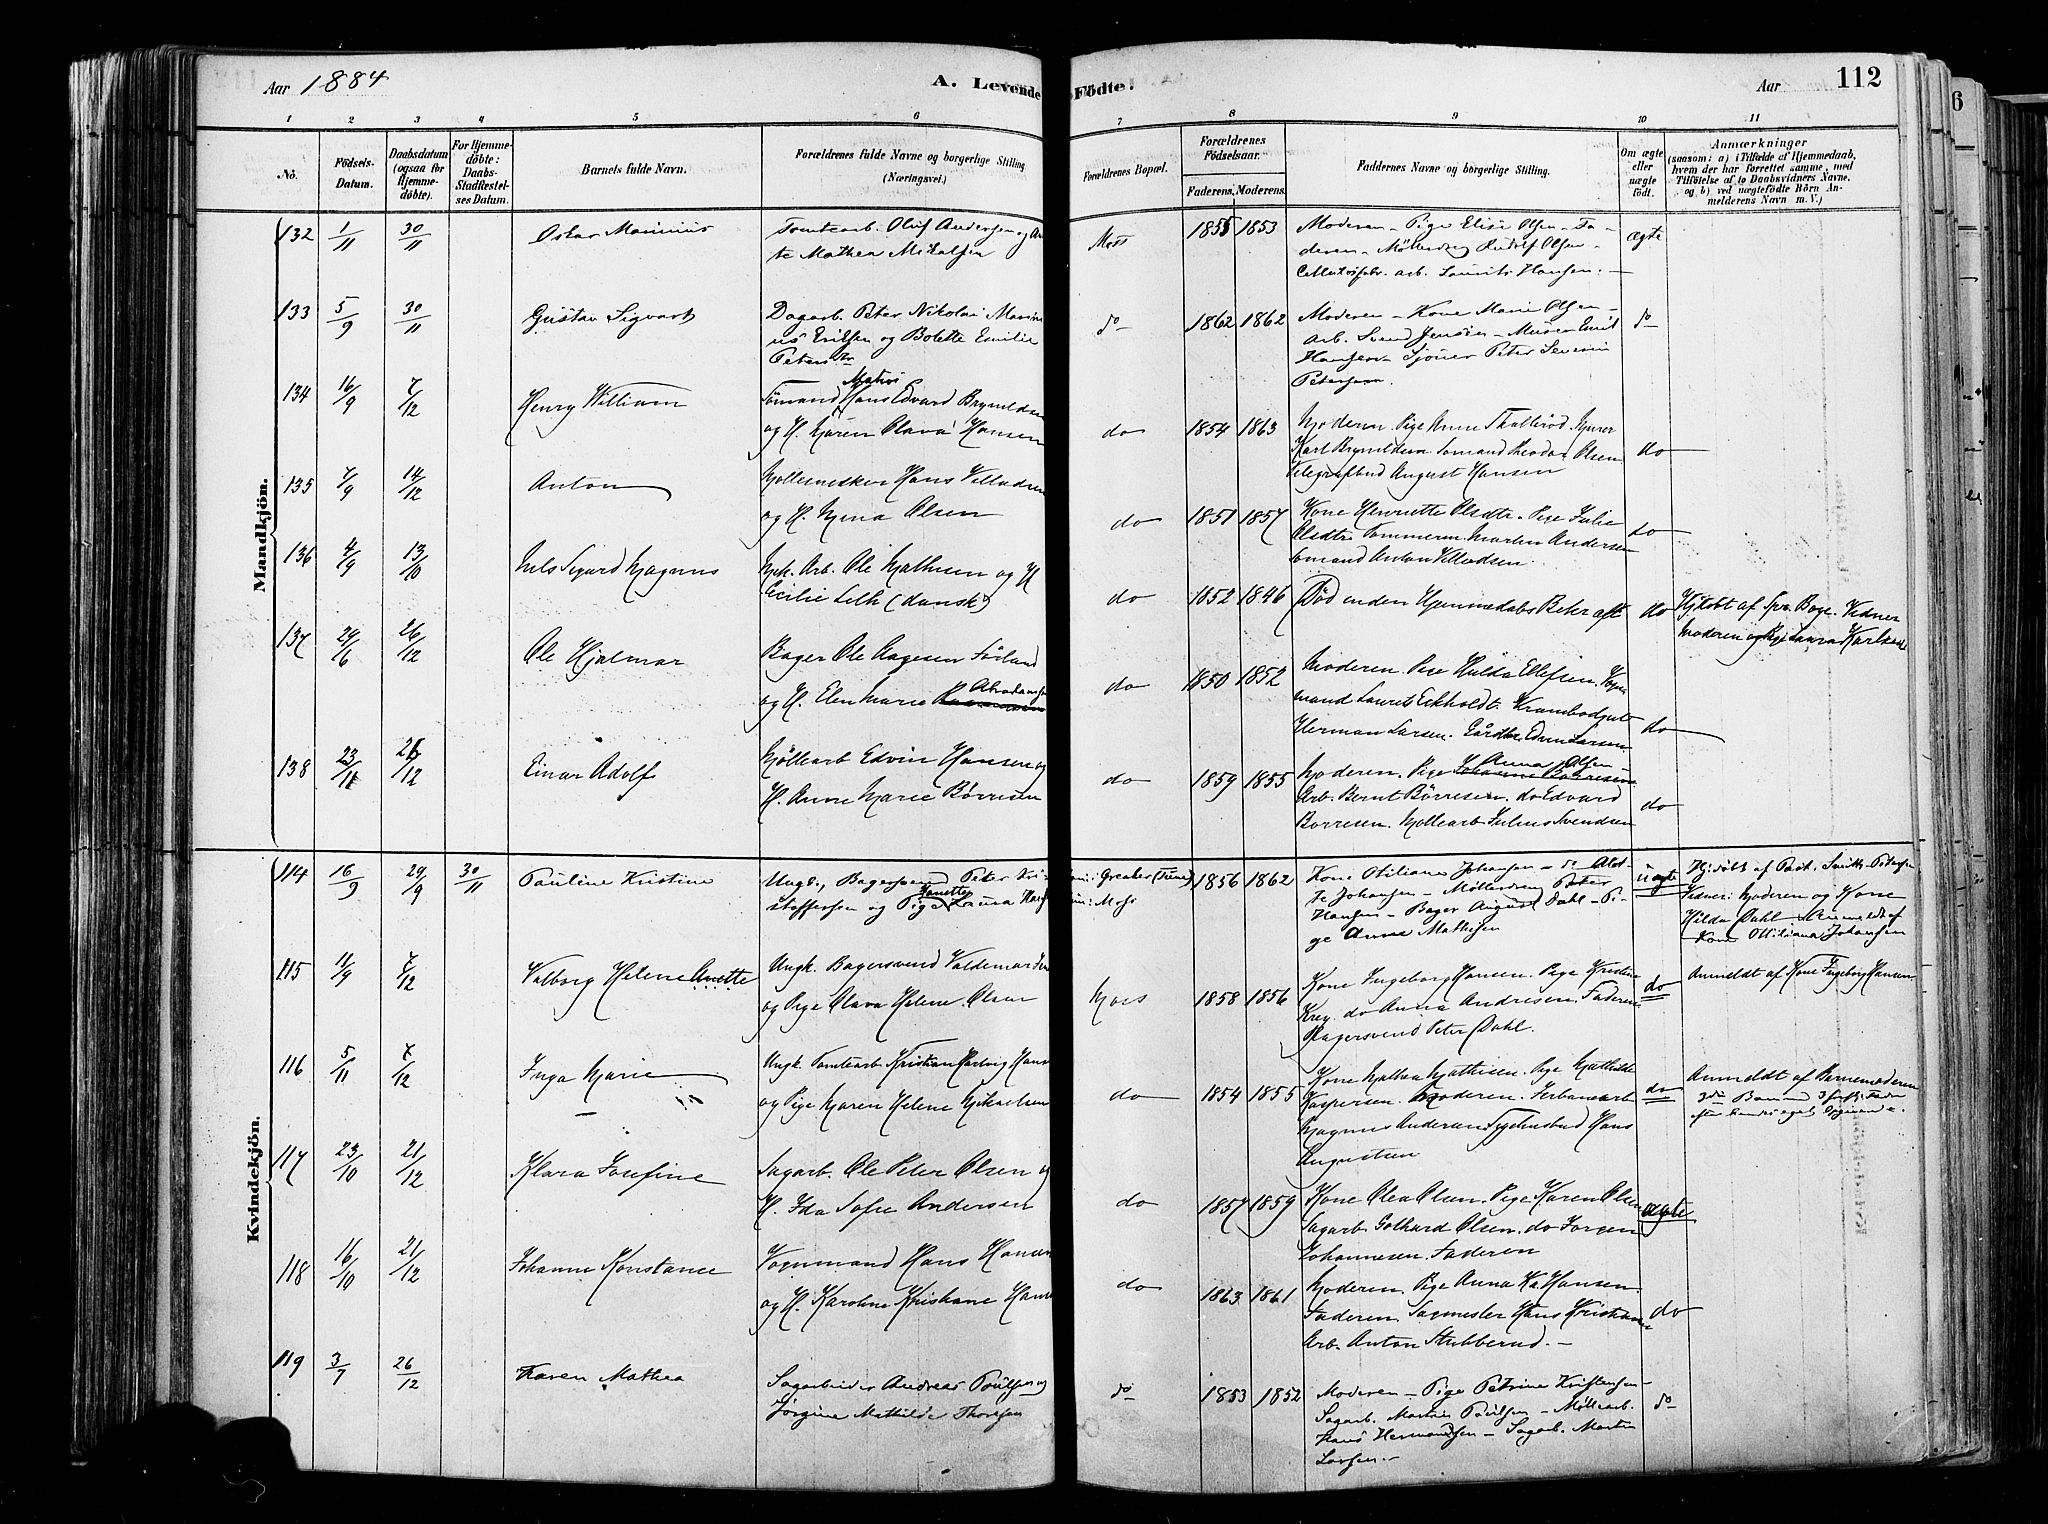 Aar 1884
A. Levende Födte.
Aar
112
1 2 3 4 5 6 7 8 9 10 11
No.
Födsels-
Datum.
Daabsdatum
(ogsaa for
Hjemme-
døbte).
For Hjemme-
døbte:
Daabs-
Stadfæstel-
ses Datum.
Barnets fulde Navn.
Forældrenes fulde Navne og borgerlige Stilling
(Næringsvei.)
Forældrenes Bopæl.
Forældrenes
Födselsaar.
Faderens.
Moderens.
Faddernes Navne og borgerlige Stilling.
Om ægte
eller
uægte
født.
Anmærkninger
(saasom: a) i Tilfælde af Hjemmedaab,
hvem der har forrettet samme, med
Tilföielse af to Daabsvidners Navne,
og b) ved uægtefødte Börn An-
melderens Navn m. V.)
Mandkjön.
132 1/11 30/11 Oskar Marinius
Tomtearb. Oluf Andersen og
te Mathea Mikalsen
Moss 1855 1853
Moderen – Pige Elise Olsen – Fa-
deren – Mølledreng Rudolf Olsen –
arb. Laurits Hansen. –
ægte
133 5/9 30/11 Gustav Sigvart
Dagarb. Peter Nikolai Marin
us Eriksen og Bolette Emilie
Peters dtr
do 1862 1862
Moderen – Kone Marie Olsen –
Arb. Svend Jensen – Murer Emil
Hansen – Sjöm. Peter Severin
Petersen
do
134 16/9 7/12 Henry William
Matros
Sömand Hans Edvard Brynildsen
og H. Karen Olava Hansen
do 1854 1863
Moderen. Pige Anne Murer
Karl Brynildsen Somand Theodor Olsen
Telegrafbud August Hansen
do
135 7/9 14/12 Anton
Hans Villadsen
og H. Mina Olsen
do 1851 1857
Kone Henriette Olsdtr. Pige Julie
Olsdtr Tömmerm. Martin Andersen
Somand Anton Villadsen
do
136 4/9 13/10 Nils Sigurd Magnus
Mek. Arb. Ole Mathisen og H
Cecilie (dansk)
do 1852 1846
Död inden Hjemmedaabs Bekræft
do
Hjdöbt af Spr. Boye. Vidner
Moderen og Pige Laura Karlsen
137 29/6 26/12 Ole Hjalmar
Bager Ole Aagesen Förland
og H. Elen Marie Abrahamsen
do 1850 1852
Moderen. Pige Hulda Ellefsen. Kjöp
mand Laurits Eckholdt. Krambodgut
Herman Larsen. Edvin Larsen
do
138 23/11 26/12 Einar Adolf
Möllearb Edvin Hansen og
H. Anne Marie Börresen
do 1859 1855
Anna Olsen
Moderen. Pige Johanne Börresen
Arb. Bernt Börresen. do Edvard
Borresen. Möllearb Julius Svendsen
do
Kvindekjön.
114 16/9 29/9 30/11 Pauline Kristine
Ungk., Bagersvend Peter Kri-
stoffersen og Pige Laura
Greaker (Tune)
Moss
1856 1862
Kone Otiliana Johansen – do
te Johansen – Mølledreng Peter
Hansen – Bager August Dahl – Pi-
ge Anne Mathisen
uægte
Hjdöbt af
Vidner: Moderen og Kone
Hilda Dahl – Anmeldt af
Kone Ottiliana Johansen
115 11/9 7/12 Valborg Helene Anette
Ungk. Bagersvend Valdemar
og Pige Olava Helene Olsen
Moss 1858 1856
Kone Ingeborg Hansen. Pige Kristine
Krey. do Anna Andresen. Faderen
Bagersvend Peter Dahl.
do
Anmeldt af Kone Ingeborg Hansen
116 5/11 7/12 Inga Marie
Ungk. Tomtearb Kristian Hartvig Hans
og Pige Maren Helene Mikaelsen
do 1854 1855
Kone Mathea Mathisen. Pige Mathilde
Kaspersen. Moderen. Jerbanearb
Magnus Andersen Hans
Augustsen
do
Anmeldt af Barnemoderen
3die Barn
efter hendes eget Opgivende.
117 23/10 21/12 Klara Josefine
Sagarb. Ole Peter Olsen og
H. Ida Sofie Andersen
do 1857 1859
Kone Olea Olsen. Pige Karen Olsen
Sagarb. Gothard Olsen. do Jörgen
Johannesen. Faderen
ægte
118 16/10 21/12 Johanne Konstance
Vognmand Hans Hansen
og H. Karoline Kristiane Hans
do 1863 1861
Moderen. Pige Anna Ka. Hansen.
Faderen. Sagmester Hans Kristiansen
Arb. Anton Stubberud. –
do
119 3/7 26/12 Karen Mathea
Sagarbeider Andreas Poulsen og
Jörgine Mathilde Thoresen
do 1853 1852
Moderen – Pige Petrine Kristensen –
Sagarb. Martin Poulsen – Møllearb.
Hans Hermandsen – Sagarb. Martin
Larsen. –
do